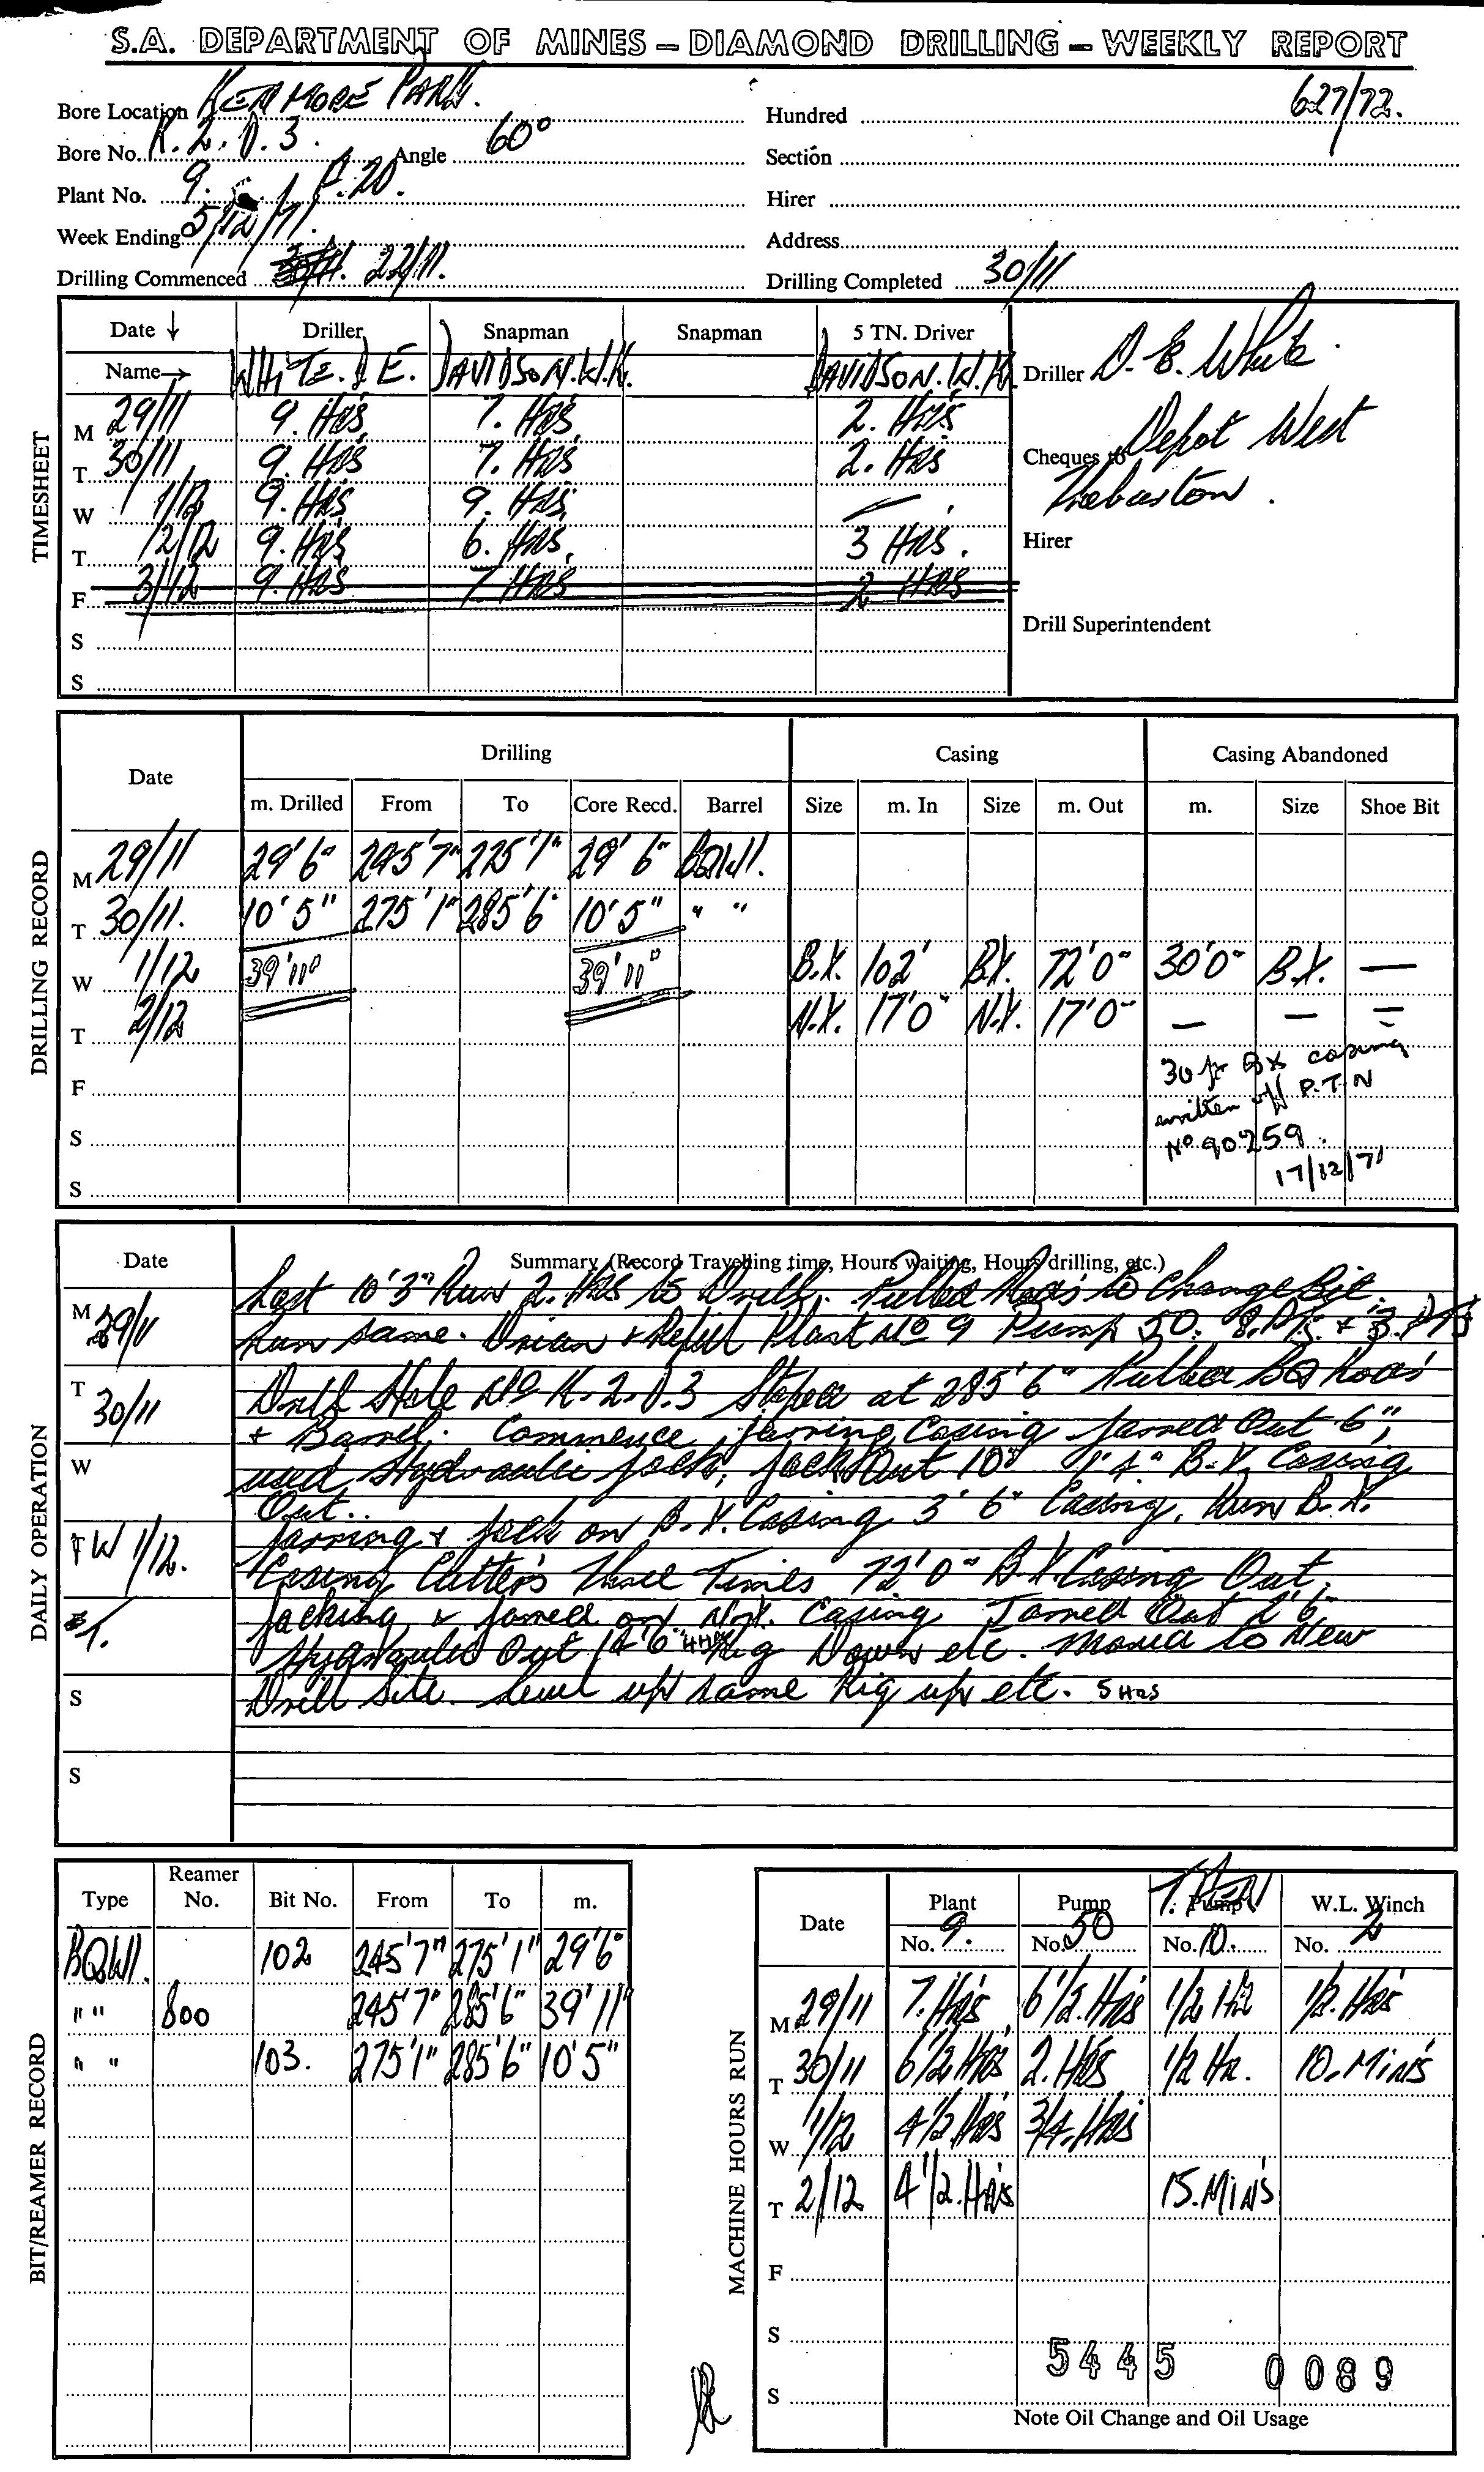 S.A. DEPARTMENT OF MINES – DIAMOND DRILLING – WEEKLY REPORT
627/72.
Bore Location KENMORE PARK.
Hundred
Bore No. K.2.D.3. Angle 60°
Section
Plant No. 9. F.20.
Hirer
Week Ending 5/12/71.
Address
Drilling Commenced 22/11.
Drilling Completed 30/11
TIMESHEET
Date ↓ Driller Snapman Snapman 5 TN. Driver
Name→ WHITE. D E. DAVIDSON. W.K. DAVIDSON. W.K.
Driller D. E. White.
M 29/11 9. HRS 7. HRS 2. HRS
T 30/11 9. HRS 7. HRS 2. HRS
Cheques to Depot West
Thebarton.
W 1/12 9. HRS 9. HRS. –
T 2/12 9. HRS 6. HRS. 3 HRS.
Hirer
F 3/12 9. HRS 7 HRS 2 HRS
Drill Superintendent
S
S
DRILLING RECORD
Date Drilling Casing Casing Abandoned
m. Drilled From To Core Recd. Barrel Size m. In Size m. Out m. Size Shoe Bit
M 29/11 29'6" 245'7" 225'1" 29'6" BQWl.
T 30/11. 10'5" 275'1" 285'6" 10'5" " "
W 1/12 39'11" 39'11" B.X. 102' B.X. 72'0" 30'0" B.X. —
T 2/12 N.X. 17'0 N.X. 17'0" — — —
F
30 ft BX casing
written off P.T.N
S
No 90259.
17/12/71
S
DAILY OPERATION
Date Summary (Record Travelling time, Hours waiting, Hours drilling, etc.)
M 29/11 Last 10'3" Run 2. Hrs to Drill. Pulled Rods to Change Bit.
Run same. Drian & Refill Plant No 9 Pump 50. 8. Pts. & 3. Pts
T 30/11 Drill Hole No K.2.D.3 Stoped at 285'6" Pulled BQ Rods
& Barrel. Commence Jarring Casing Jarred Out 6",
W used Hydraulic Jack, Jack Out 10" B.X. Casing
Out..
T W 1/12. Jarring & Jack on B.X. Casing 3'6" Casing, Run B.X.
Casing Cutters Three Times 72'0" B.X. Casing Out,
T. Jacking & Jarred on N.X. Casing Jarred Out 2'6"
Hydraulic Out 14'6" 4 HRS Rig Down etc. Moved to New
S Drill Site. Level up same Rig up etc. 5 HRS
S
BIT/REAMER RECORD
Type Reamer No. Bit No. From To m.
BQWl. 102 245'7" 275'1" 29'6"
" " 800 245'7" 285'6" 39'11"
" " 103. 275'1" 285'6" 10'5"
MACHINE HOURS RUN
Date Plant Pump Pump W.L. Winch
No. 9. No. 50 No. 10. No. 2
M 29/11 7. HRS 6 1/2. HRS 1/2 HR 1/2. HRS
T 30/11 6 1/2 HRS 2. HRS 1/2 HR. 10. MINS
W 1/12 4 1/2 HRS 3/4. HRS
T 2/12 4 1/2. HRS 15. MINS
F
S
5445 0089
S
Note Oil Change and Oil Usage